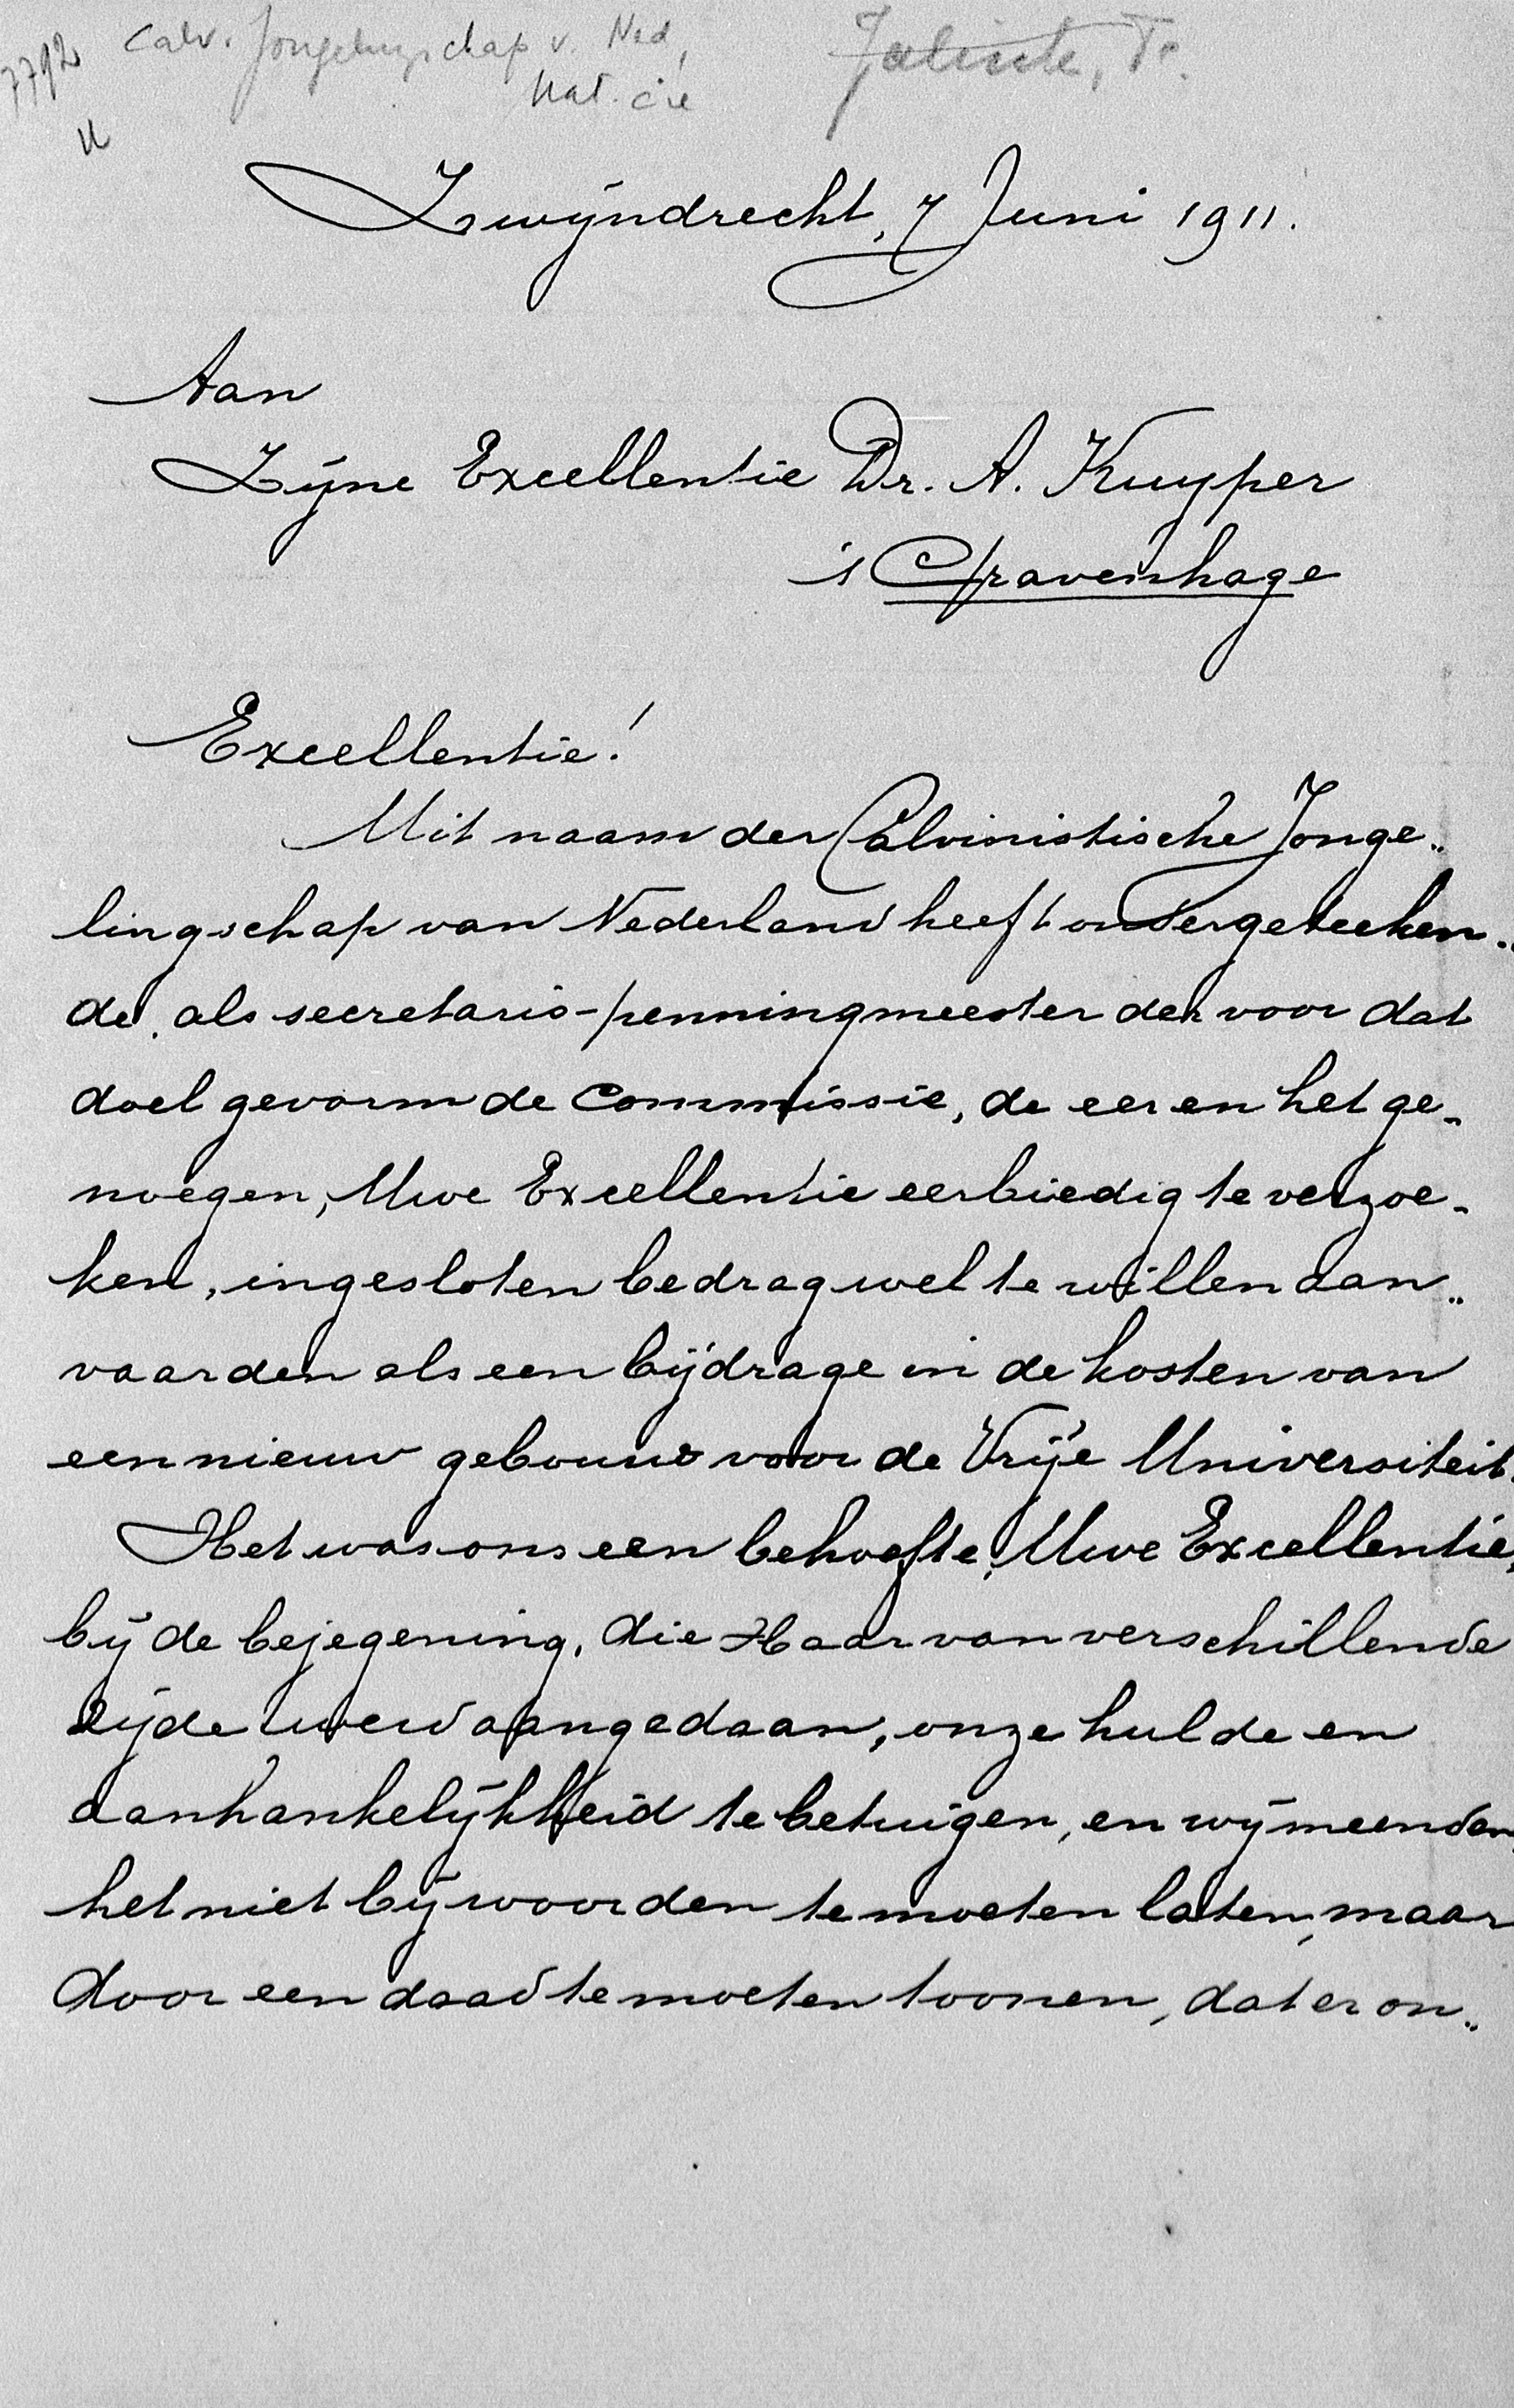 7792
Calv. Jongelingschap v. Ned,
Nat. cie
Zwijndrecht, 7 Juni 1911.
Aan
Zijne Excellentie Dr. A. Kuyper
's Gravenhage
Excellentie!
Uit naam der Calvinistische Jonge„
lingschap van Nederland heeft ondergeteeken„
de, als secretaris-penningmeester der voor dat
doel gevormde Commissie, de eer en het ge-
noegen, Uwe Excellentie eerbiedig te verzoe-
ken, ingesloten bedrag wel te willen aan„
vaarden als een bijdrage in de kosten van
een nieuw gebouw voor de Vrije Universiteit.
Het was ons een behoefte, Uwe Excellentie,
bij de bejegening, die Haar van verschillende
zijde werd aangedaan, onze hulde en
aanhankelijkheid te betuigen, en wij meenden
het niet bij woorden te moeten laten, maar
door een daad te moeten toonen, dat er on„